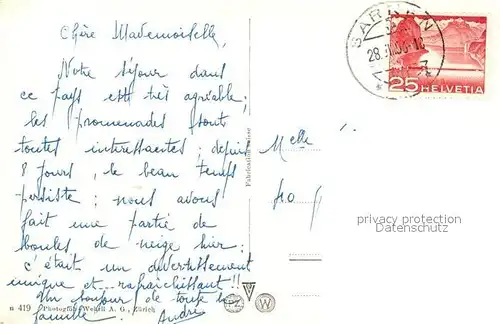 Chère Mademoiselle,
Notre séjour dans
ce pays est très agréable;
les promenades sont
toutes interessantes; depuis
8 jours, le beau temps
persiste; nous avons
fait une partie de
boules de neige hier;
c'était un divertissement
unique et.. rafraîchissant!!
Un bonjour de toute la
famille. André
n 419 Photogr. Wehrli A. G., Zürich
Fabrication suisse
SARNEN
28.
25 HELVETIA
Melle
privacy protection
Datenschutz
W